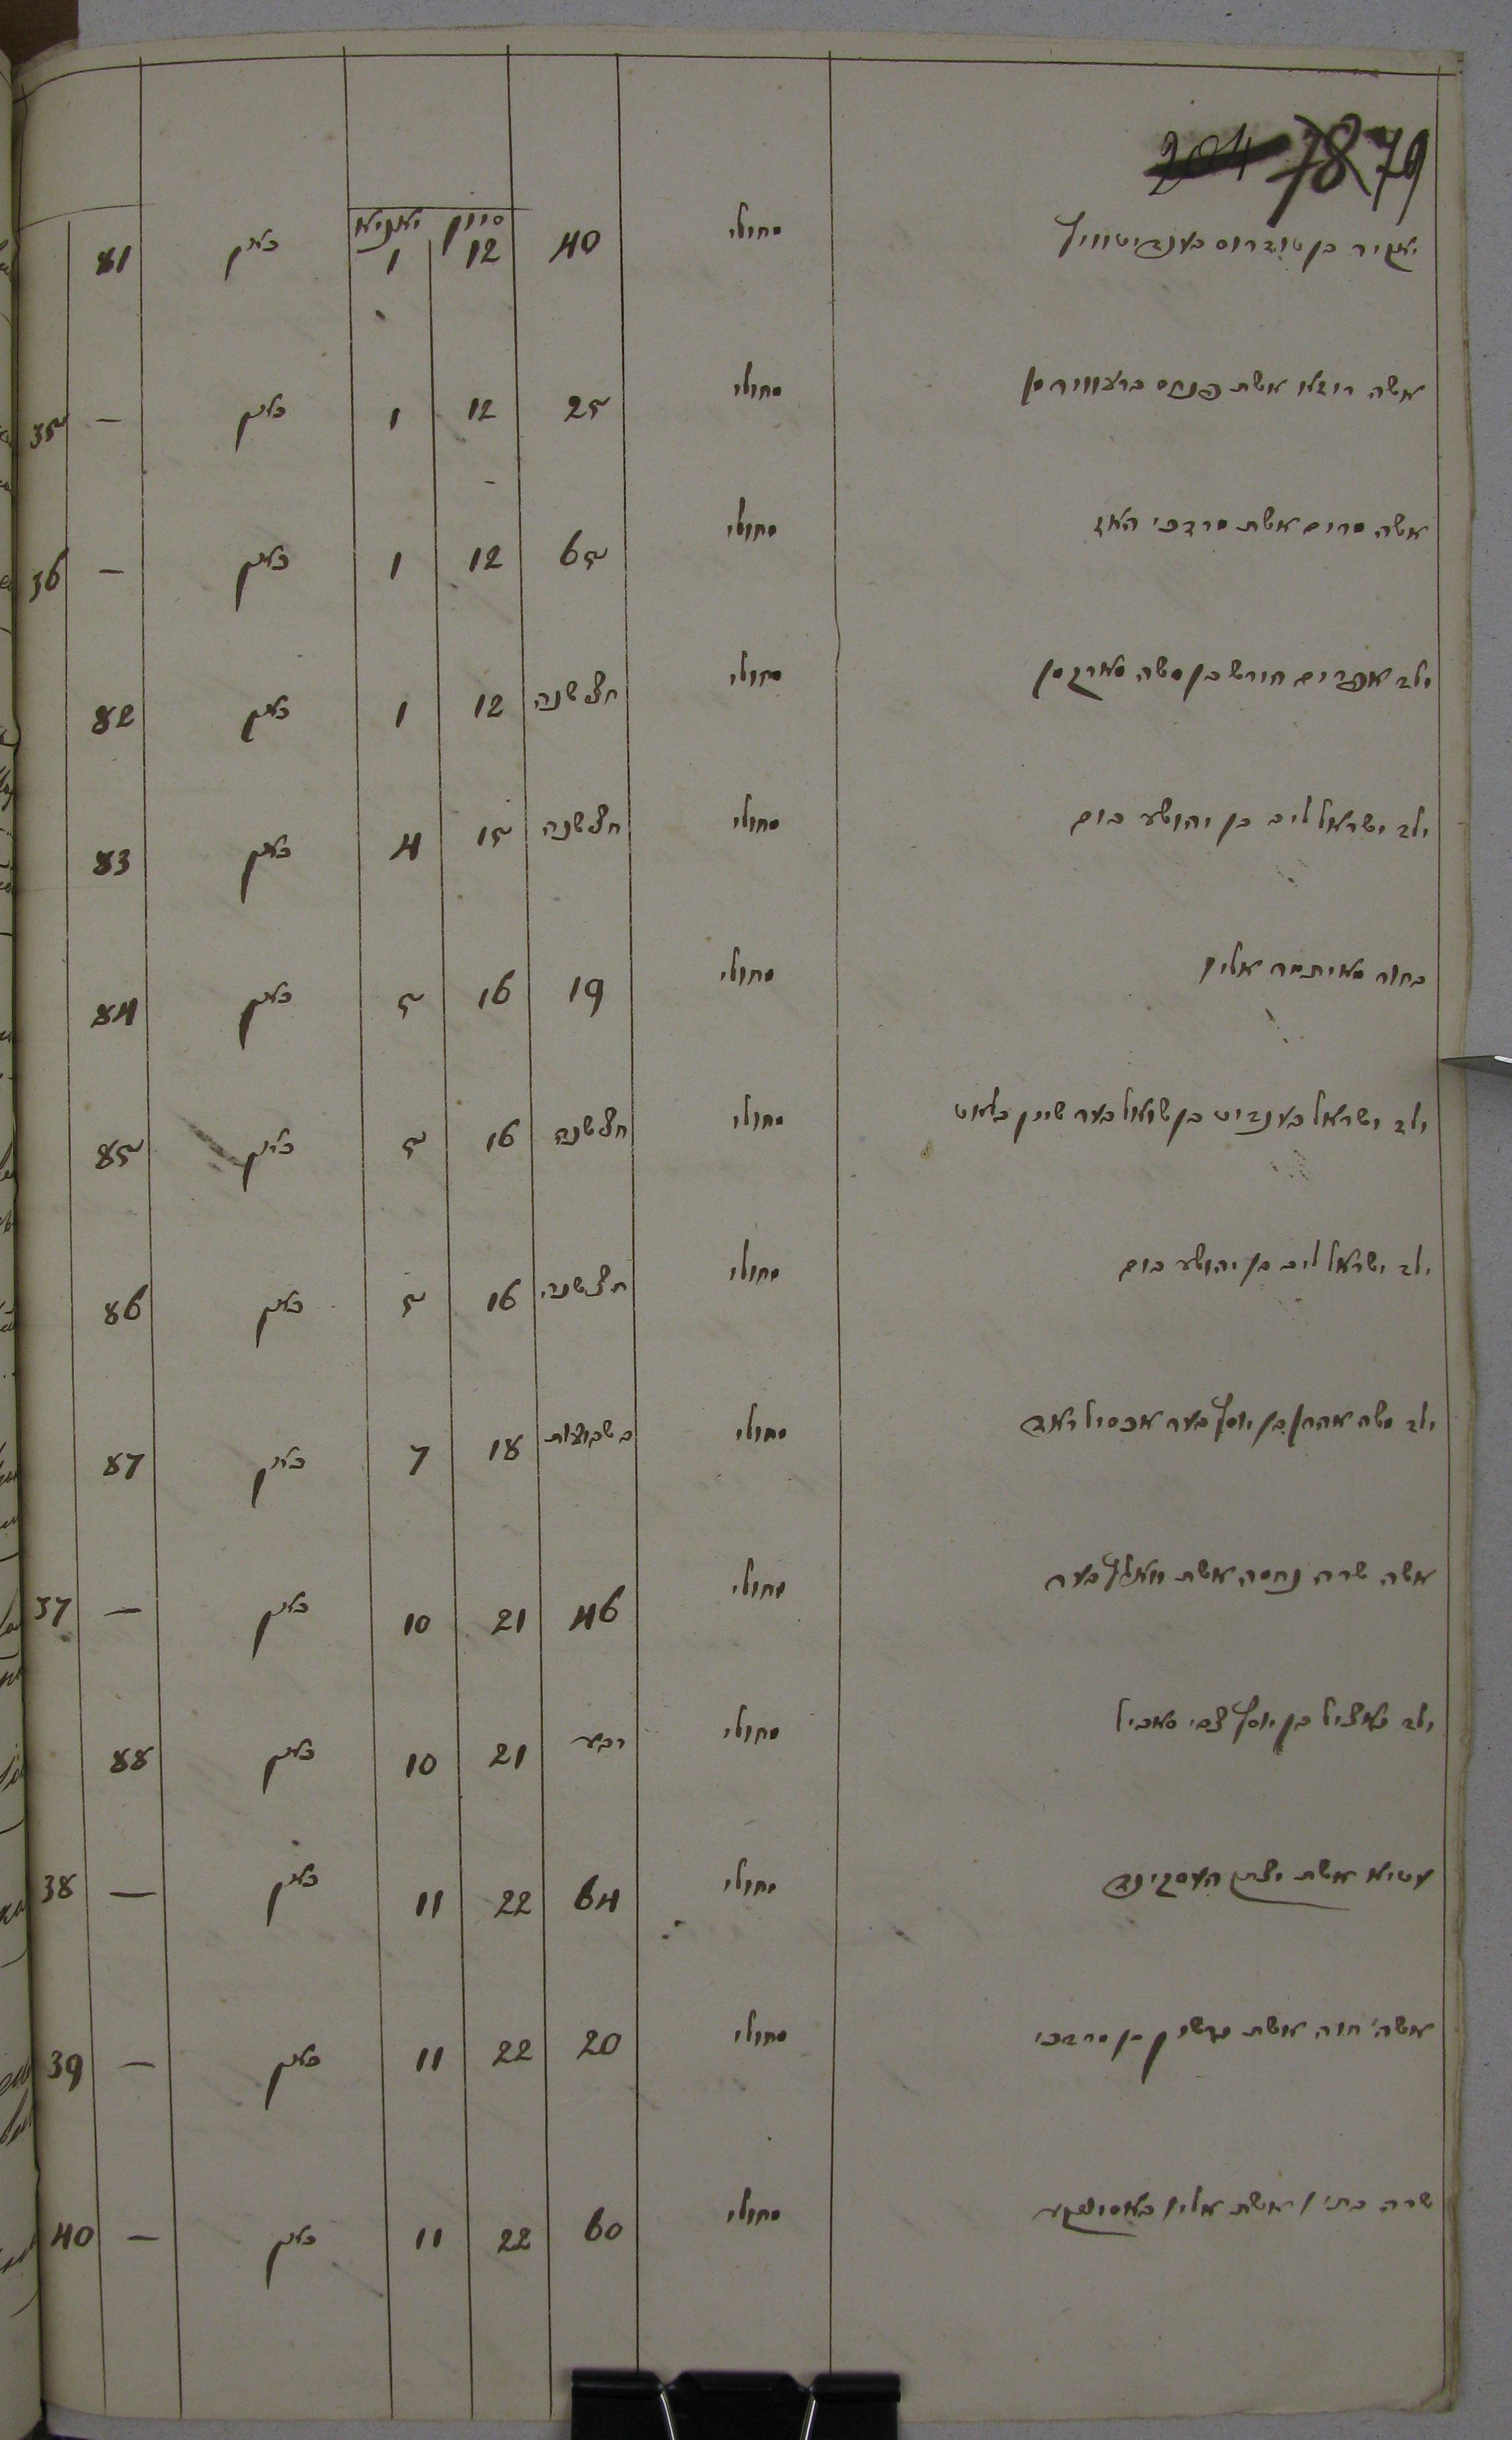 204 78 79
יאקיר בן טודרוס מחולי 40 סיון 12 יאניא 1 כאן 81
אשה רודא אשת פנחס מחולי 25 12 1 כאן — 35
אשה מרים אשת מרדכי האז מחולי 65 12 1 כאן — 36
ילד אפרים הירש בן משה מארקסן מחולי חצ שנה 12 1 כאן 82
ילד ישראל ליב בן יהושע בום מחולי חצ שנה 15 4 כאן 83
בחור מאיתמר אליו מחולי 19 16 5 כאן 84
ילד ישראל בענדיט בן שמואל בער שיין בלאט מחולי חצ שנה 16 5 כאן 85
ילד ישראל ליב בן יהושע בום מחולי חצ שנה 16 5 כאן 86
ילד משה אהרן בן יוסף בער מחולי ב שבועות 18 7 כאן 87
אשה שרה נחמה אשת וואלף בער מחולי 46 21 10 כאן — 37
ילד בן יוסף צבי מחולי רבע 21 10 כאן 88
אשת יצחק מחולי 64 22 11 כאן — 38
אשה חוה אשת בן מרדכי מחולי 20 22 11 כאן — 39
שרה אשת אליו מחולי 60 22 11 כאן — 40